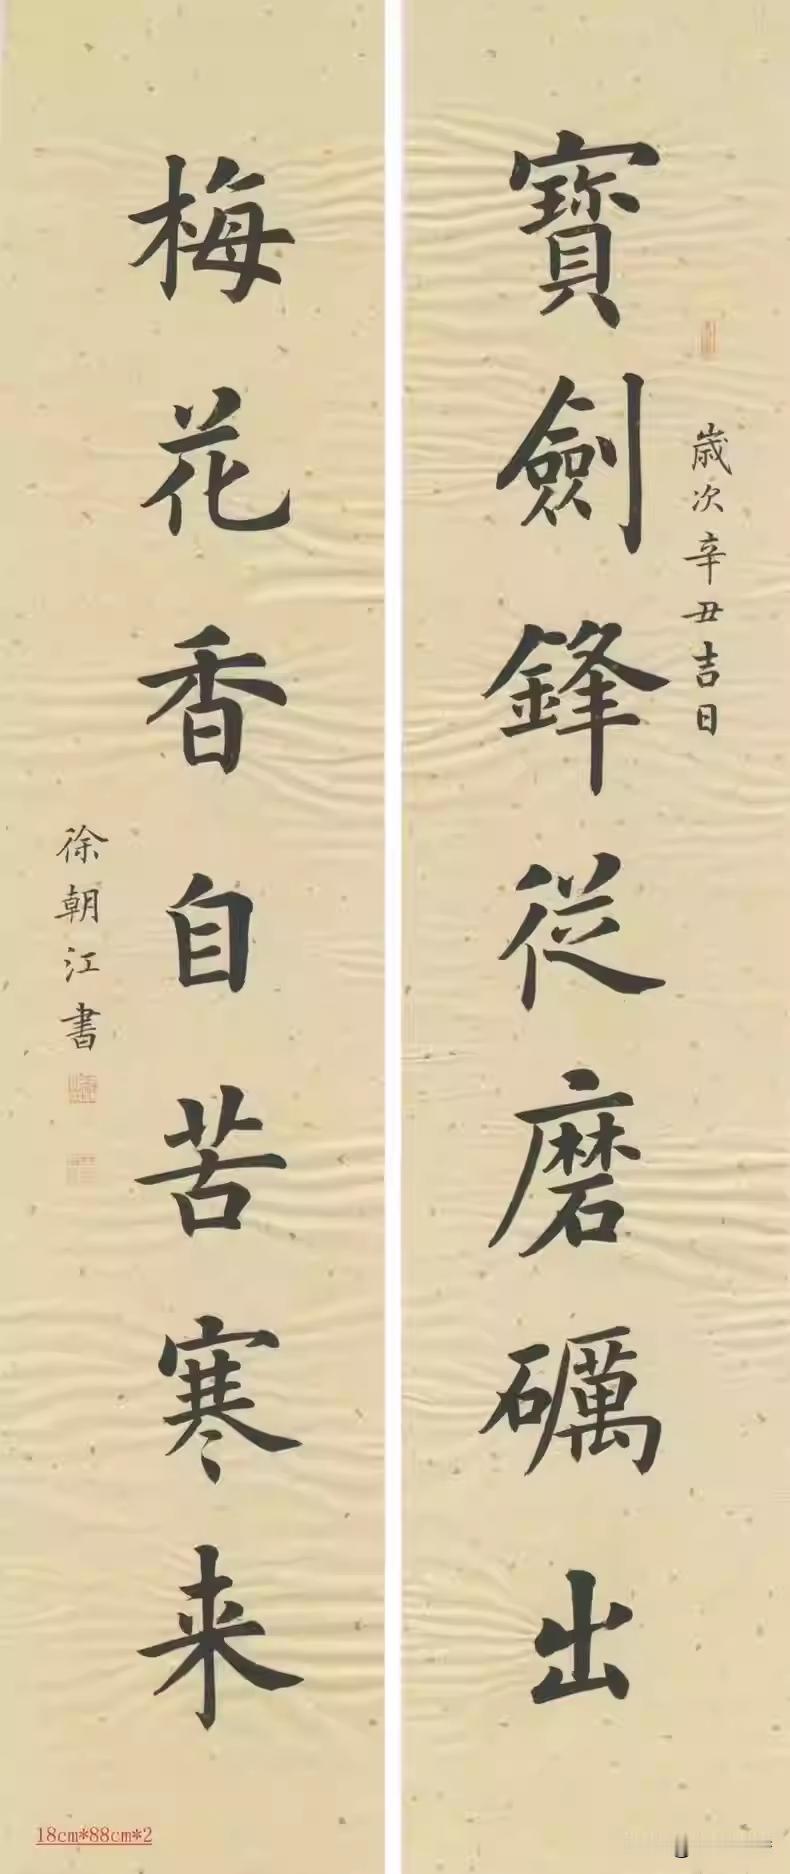 歲次辛丑吉日
寶劍鋒從磨礪出
梅花香自苦寒来
徐朝江書
18cm*88cm*2